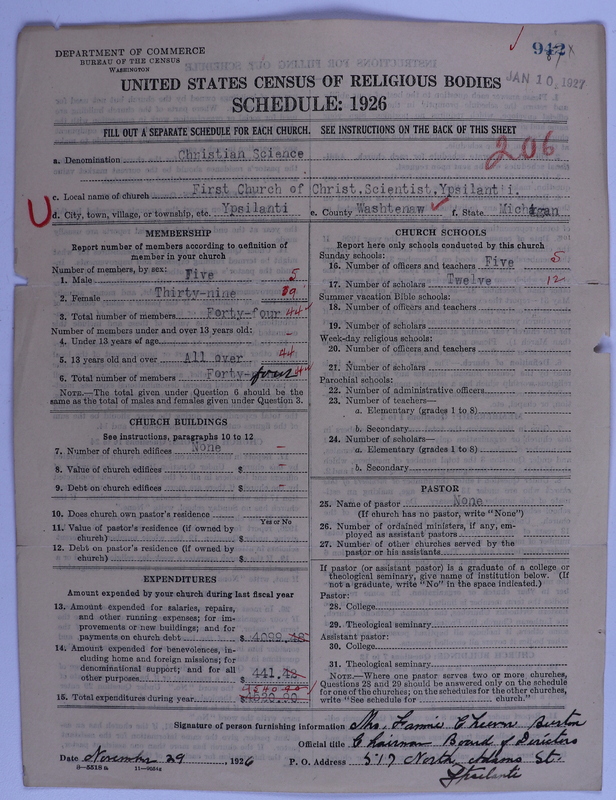 942
DEPARTMENT OF COMMERCE
BUREAU OF THE CENSUS
WASHINGTON
JAN 10, 1927
UNITED STATES CENSUS OF RELIGIOUS BODIES
SCHEDULE: 1926
FILL OUT A SEPARATE SCHEDULE FOR EACH CHURCH. SEE INSTRUCTIONS ON THE BACK OF THIS SHEET
206
a. Denomination Christian Science
c. Local name of church First Church of Christ,Scientist,Ypsilanti.
d. City, town, village, or township, etc. Ypsilanti e. County Washtenaw f. State Michigan
MEMBERSHIP
Report number of members according to definition of
member in your church
Number of members, by sex:
1. Male Five 5
2. Female Thirty-nine 39
3. Total number of members Forty-four 44
Number of members under and over 13 years old:
4. Under 13 years of age -
5. 13 years old and over All over 44
6. Total number of members Forty-four 44
NOTE.—The total given under Question 6 should be
same as the total of males and females given under Question 3.
CHURCH BUILDINGS
See instructions, paragraphs 10 to 12
7. Number of church edifices None -
8. Value of church edifices $ -
9. Debt on church edifices $ -
10. Does church own pastor's residence
Yes or No
11. Value of pastor's residence (if owned by
church) $
12. Debt on pastor's residence (if owned by
church) $
EXPENDITURES
Amount expended by your church during last fiscal year
13. Amount expended for salaries, repairs,
and other running expenses; for im-
provements or new buildings; and for
payments on church debt $ 4099.48
14. Amount expended for benevolences, in-
cluding home and foreign missions; for
denominational support; and for all
other purposes $ 441.42
15. Total expenditures during year $
CHURCH SCHOOLS
Report here only schools conducted by this church
Sunday schools:
16. Number of officers and teachers Five 5
17. Number of scholars Twelve 12
Summer vacation Bible schools:
18. Number of officers and teachers
19. Number of scholars
Week-day religious schools:
20. Number of officers and teachers
21. Number of scholars
Parochial schools:
22. Number of administrative officers
23. Number of teachers—
a. Elementary (grades 1 to 8)
b. Secondary
24. Number of scholars—
a. Elementary (grades 1 to 8)
b. Secondary
PASTOR
25. Name of pastor None
(If church has no pastor, write "None")
26. Number of ordained ministers, if any, em-
ployed as assistant pastors
27. Number of other churches served by the
pastor or his assistants
If pastor (or assistant pastor) is a graduate of a college or
theological seminary, give name of institution below. (If
not a graduate, write "No" in the space indicated.)
Pastor:
28. College
29. Theological seminary
Assistant pastor:
30. College
31. Theological seminary
NOTE.—Where one pastor serves two or more churches,
Questions 28 and 29 should be answered only on the schedule
for one of the churches; on the schedules for the other churches,
write "See schedule for church."
Signature of person furnishing information Mrs. Fannie Cheever Burton
Official title Chairman Board of Directors
Date November 29, 1926 P. O. Address 517 North Adams St.
Ypsilanti
8-5518a 11-9024g